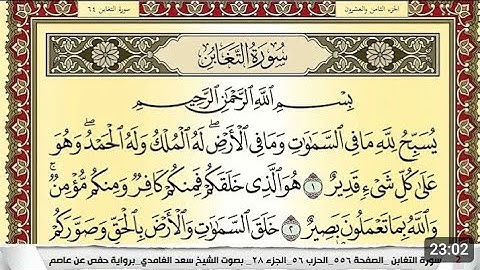 الجزء الثامن والعشرون
سورة التغابن ٦٤
سُورَةُ التَّغَابُنِ
بِسْمِ اللَّهِ الرَّحْمَٰنِ الرَّحِيمِ
يُسَبِّحُ لِلَّهِ مَا فِي السَّمَاوَاتِ وَمَا فِي الْأَرْضِ ۖ لَهُ الْمُلْكُ وَلَهُ الْحَمْدُ ۖ وَهُوَ
عَلَىٰ كُلِّ شَيْءٍ قَدِيرٌ ١ هُوَ الَّذِي خَلَقَكُمْ فَمِنكُمْ كَافِرٌ وَمِنكُم مُّؤْمِنٌ ۚ
وَاللَّهُ بِمَا تَعْمَلُونَ بَصِيرٌ ٢ خَلَقَ السَّمَاوَاتِ وَالْأَرْضَ بِالْحَقِّ وَصَوَّرَكُمْ
سورة التغابن _ الصفحة ٥٥٦_ الحزب ٥٦_ الجزء ٢٨_ بصوت الشيخ سعد الغامدي_ برواية حفص عن عاصم
23:02